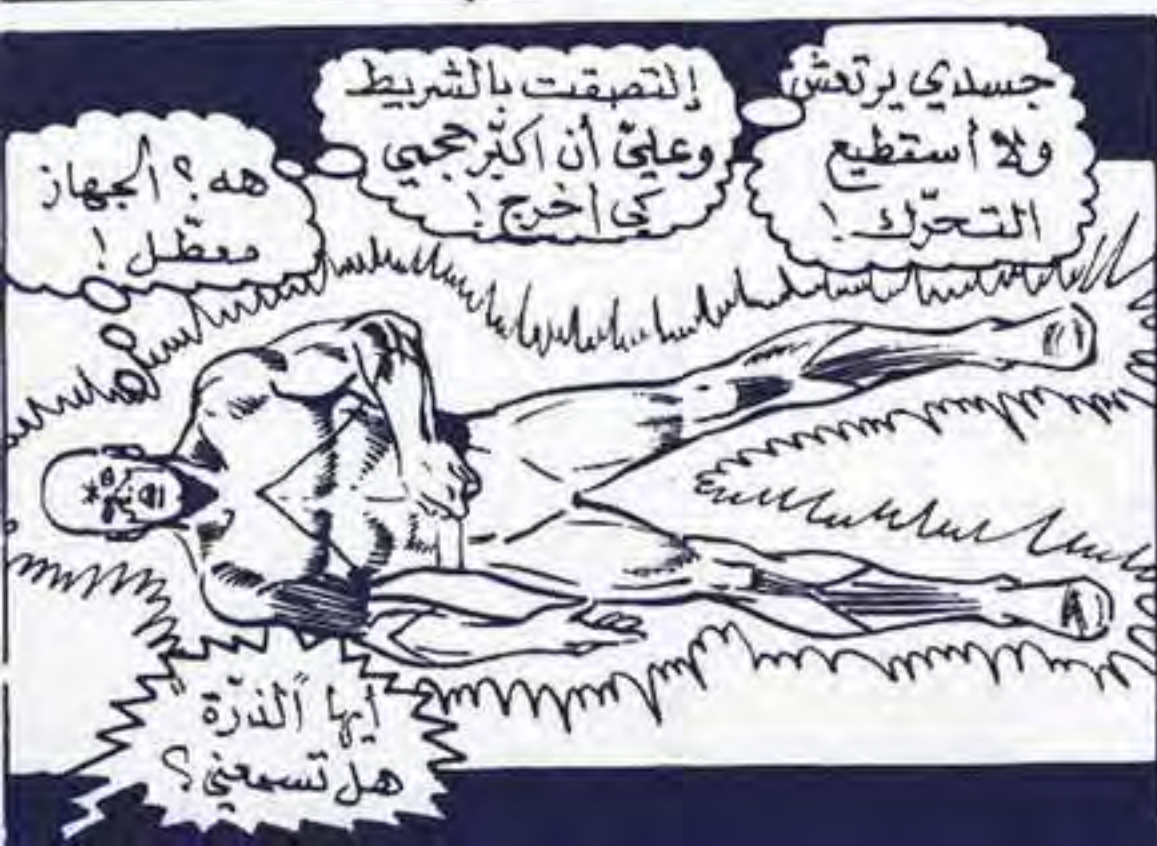 جسدي يرتعش
ولا أستطيع
التحرّك!
إلتصقت بالشريط
وعليّ أن اكبّر حجمي
كي أخرج!
هه؟ الجهاز
معطّل!
أيها "الذرّة"
هل تسمعني؟